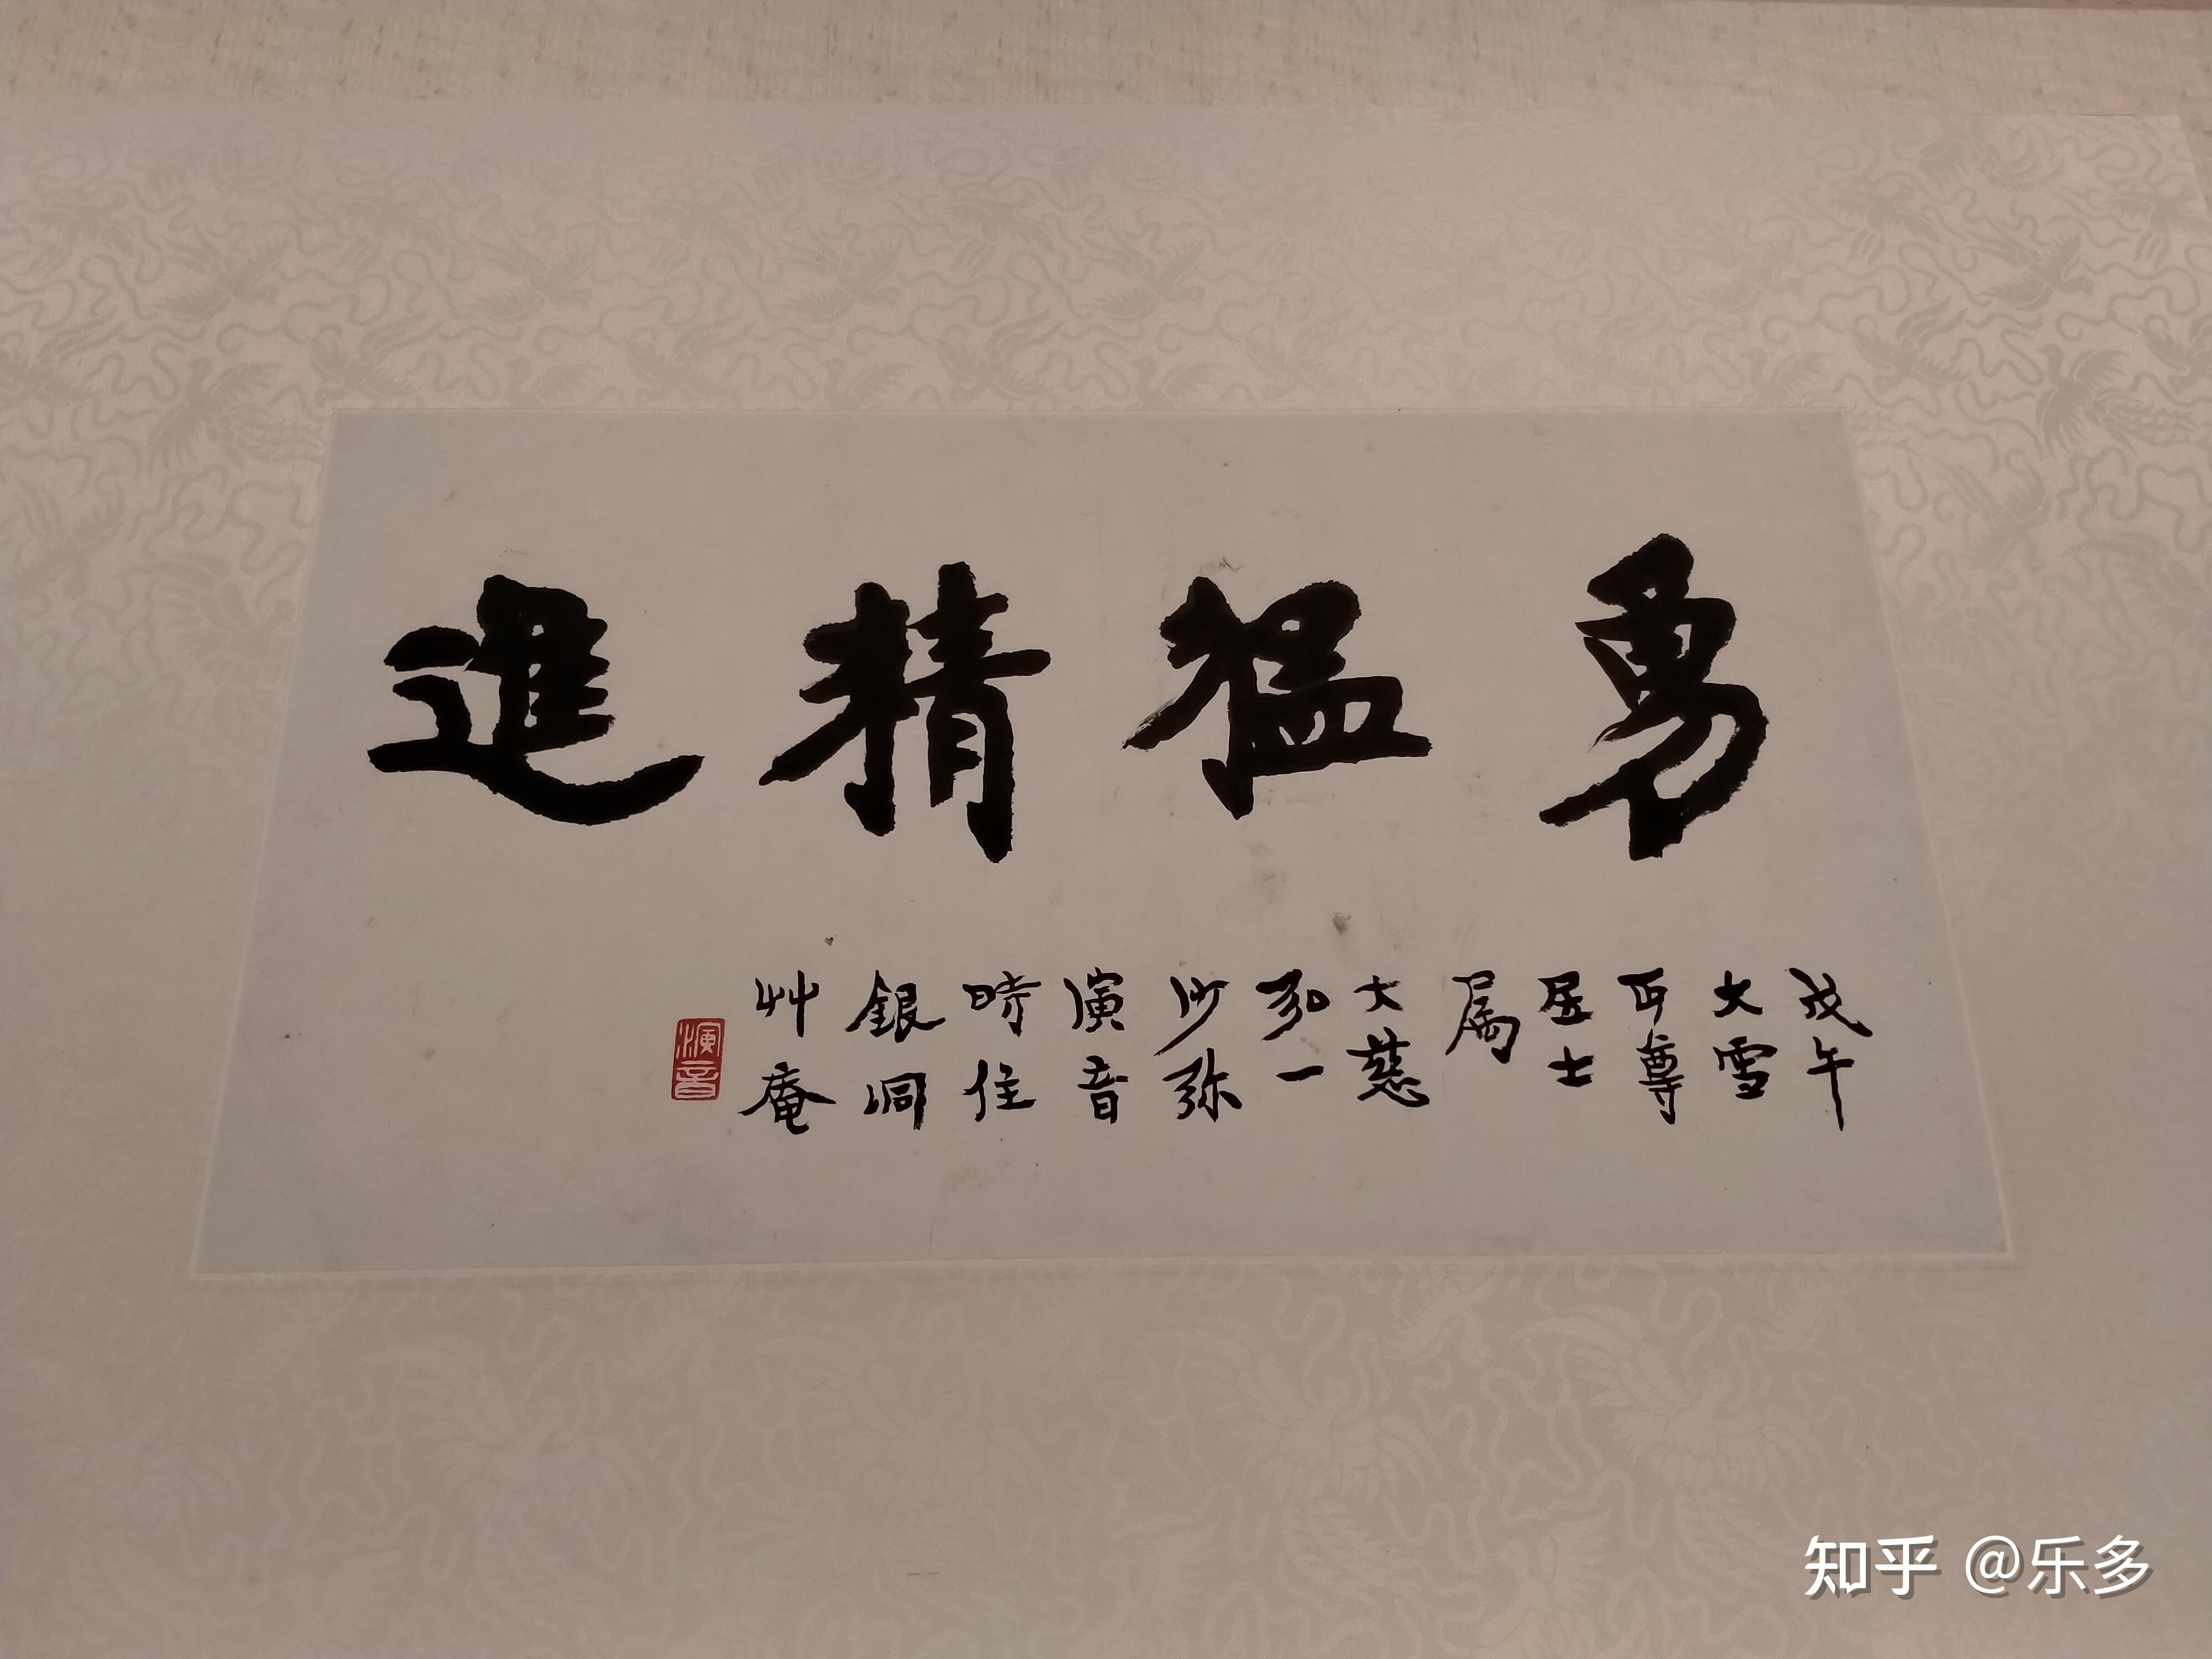 勇猛精進
戊午
大雪
丏尊
居士
属
大慈
弘一
沙弥
演音
時住
銀洞
艸庵
演音
知乎 @乐多